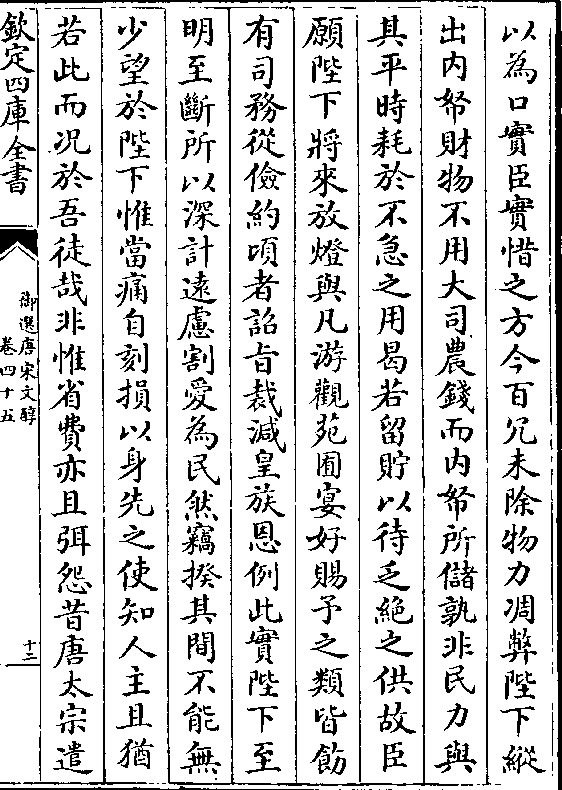 以為口實臣實惜之方今百冗未除物力凋弊陛下縱
出内帑財物不用大司農錢而内帑所儲孰非民力與
其平時耗於不急之用曷若留貯以待乏絶之供故臣
願陛下將來放燈與凡游觀苑囿宴好賜予之類皆飭
有司務從儉約頃者詔旨裁減皇族恩例此實陛下至
明至斷所以深計遠慮割愛為民然竊揆其間不能無
少望於陛下惟當痛自刻損以身先之使知人主且猶
若此而況於吾徒哉非惟省費亦且弭怨昔唐太宗遣
欽定四庫全書
御選唐宋文醇
卷四十五
十二